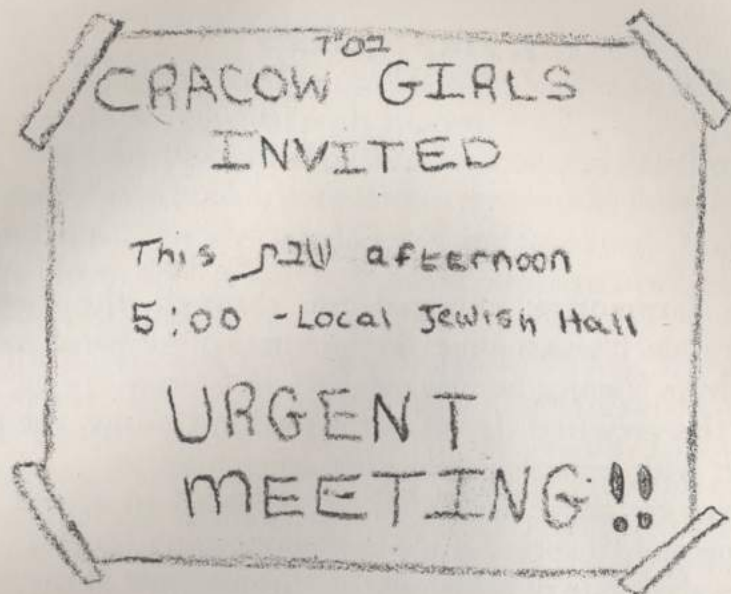 בס"ד
CRACOW GIRLS
INVITED
This שבת afternoon
5:00 - Local Jewish Hall
URGENT
MEETING!!